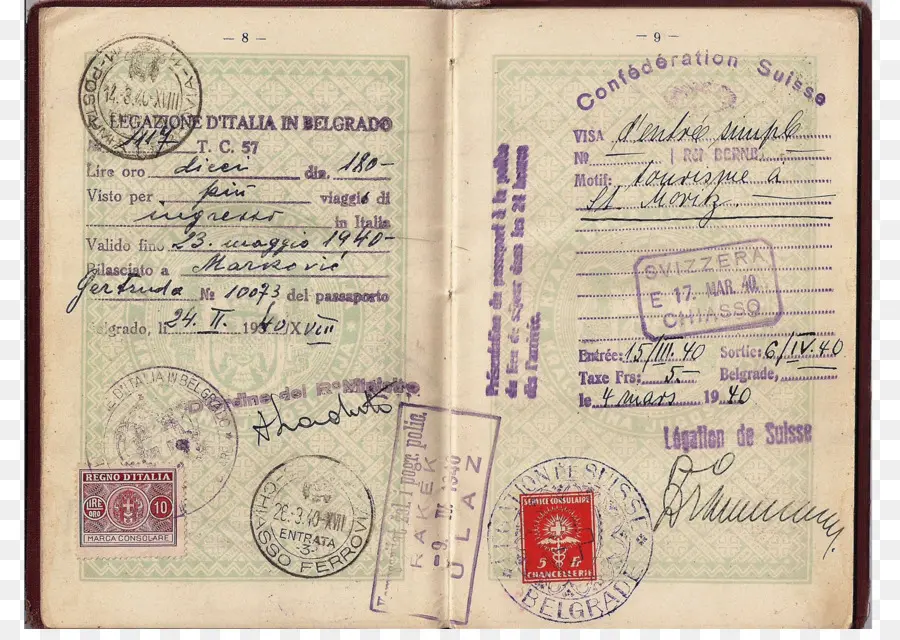 — 8 —
14.3.40-XVIII
LEGAZIONE D'ITALIA IN BELGRADO
T. C. 57
Lire oro dieci din. 180-
Visto per più viaggi di
ingresso in Italia
Valido fino 23. maggio 1940-
Rilasciato a Marković
Gertruda № 10073 del passaporto
Belgrado, li 24. II. 1940/XVIII
D'ordine del R° Ministro
E D'ITALIA IN BELGRADO
REGNO D'ITALIA
LIRE ORO 10
MARCA CONSOLARE
CHIASSO FERROVIA
ENTRATA
-3-
pogr. polic.
RAKEK
ULAZ
— 9 —
Confédération Suisse
VISA d'entrée simple
№
Motif: tourisme à
St. Moritz.
Présentation du passeport à la police
du lieu de séjour dans les 24 heures
de l'arrivée.
SVIZZERA
E 17. MAR. 40.
CHIASSO
Entrée: 15/III. 40 Sortie: 6/IV. 40
Taxe Frs: 5.- Belgrade,
le 4 mars 1940
Légation de Suisse
LEGATION DE SUISSE
SERVICE CONSULAIRE
5 Fr
CHANCELLERIE
BELGRADE